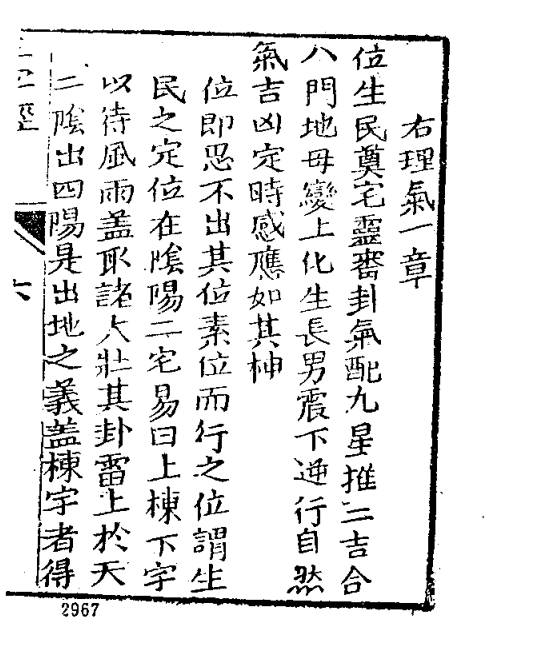 右理氣一章
位生民奠宅靈審卦氣配九星推三吉合
八門地母變上化生長男震下逆行自然
氣吉凶定時感應如其神
位即思不出其位素位而行之位謂生
民之定位在陰陽二宅易曰上棟下宇
以待風雨蓋取諸大壯其卦雷上於天
二陰出四陽是出地之義蓋棟宇者得
六
2967